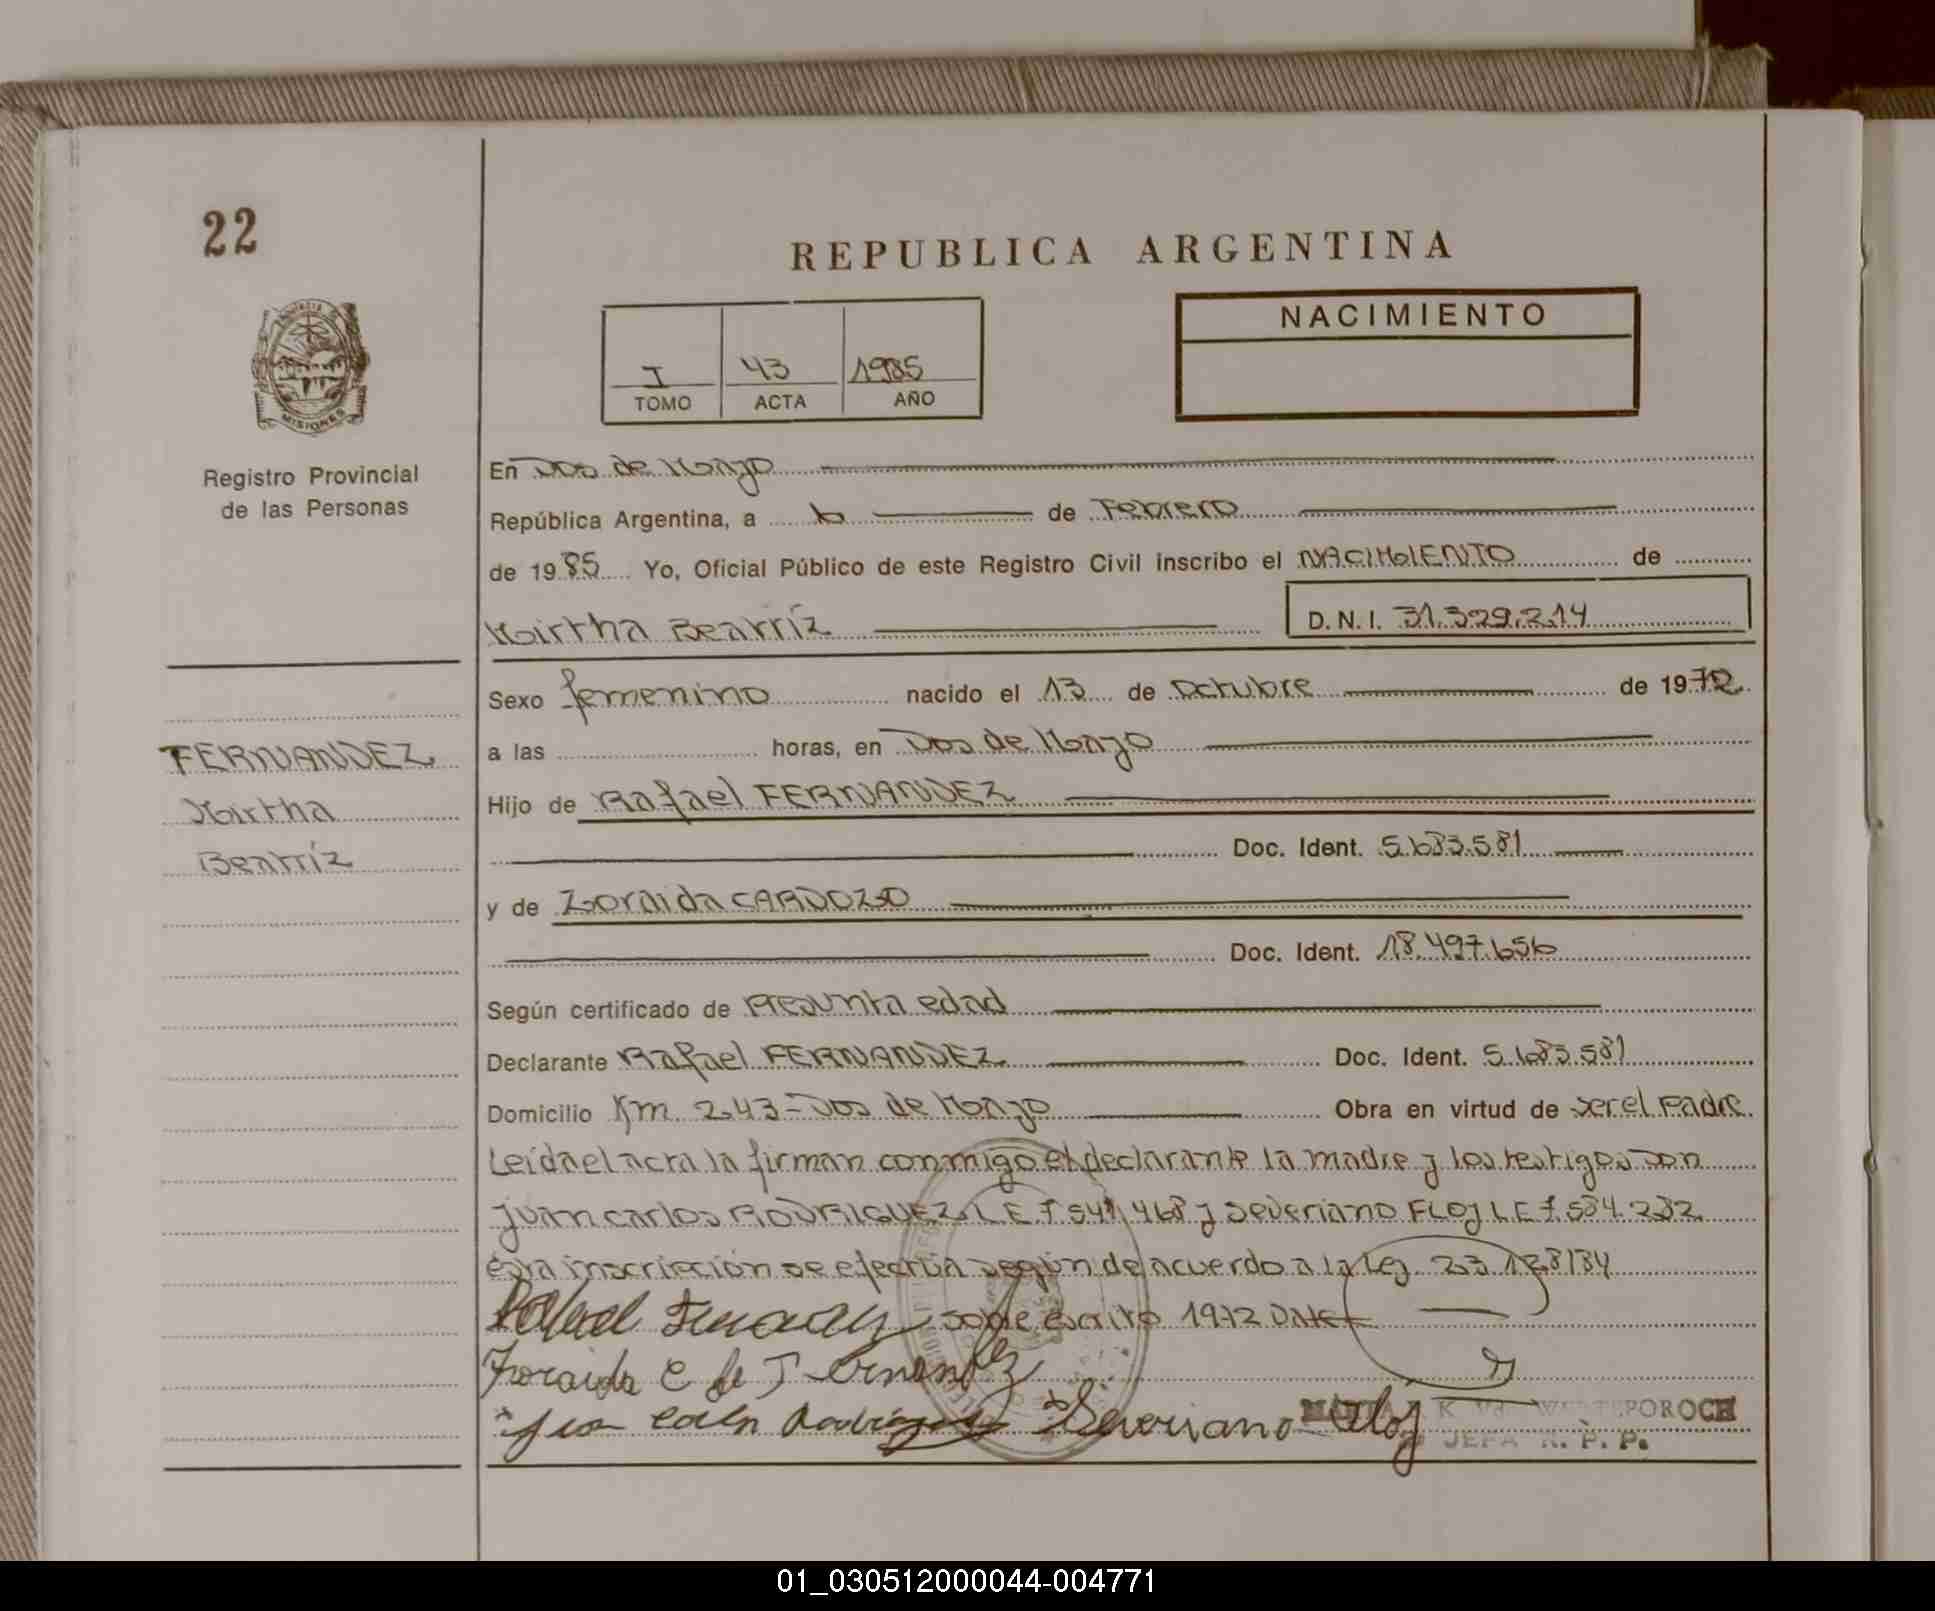 22
REPUBLICA ARGENTINA
NACIMIENTO
I 43 1985
TOMO ACTA AÑO
MISIONES
Registro Provincial
de las Personas
En Dos de Mayo
República Argentina, a 6 de Febrero
de 1985 Yo, Oficial Público de este Registro Civil inscribo el NACIMIENTO de
Mirtha Beatríz D.N.I. 31.329.214
Sexo femenino nacido el 13 de Octubre de 1972
FERNANDEZ
Mirtha
Beatríz
a las horas, en Dos de Mayo
Hijo de Rafael FERNANDEZ
Doc. Ident. 5.683.581
y de Zoraida CARDOZO
Doc. Ident. 18.497.656
Según certificado de Presunta edad
Declarante Rafael FERNANDEZ Doc. Ident. 5.683.581
Domicilio Km. 243-Dos de Mayo Obra en virtud de ser el Padre.
Leída el acta la firman conmigo el declarante la madre y los testigos Don
Juan Carlos RODRIGUEZ L.E. 7.541.468 y Severiano FLOJ L.E 7.584.282
ésta inscripción se efectúa según de acuerdo a la Ley 23.128/84
Rafael Fernandez sobre escrito 1972 Vale
Zoraida C de Fernandez
Juan Carlos Rodriguez Severiano Floj
JEFA R. P. P.
01_030512000044-004771